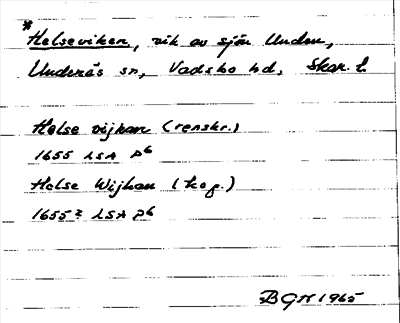 * Helseviken, vik av sjön Unden,
Undenäs sn, Vadsbo hd, Skar. l.
Helse vijkan (renskr.)
1655 LSA P6
Helse Wijkan (kop.)
1655? LSA P6
BGN 1965